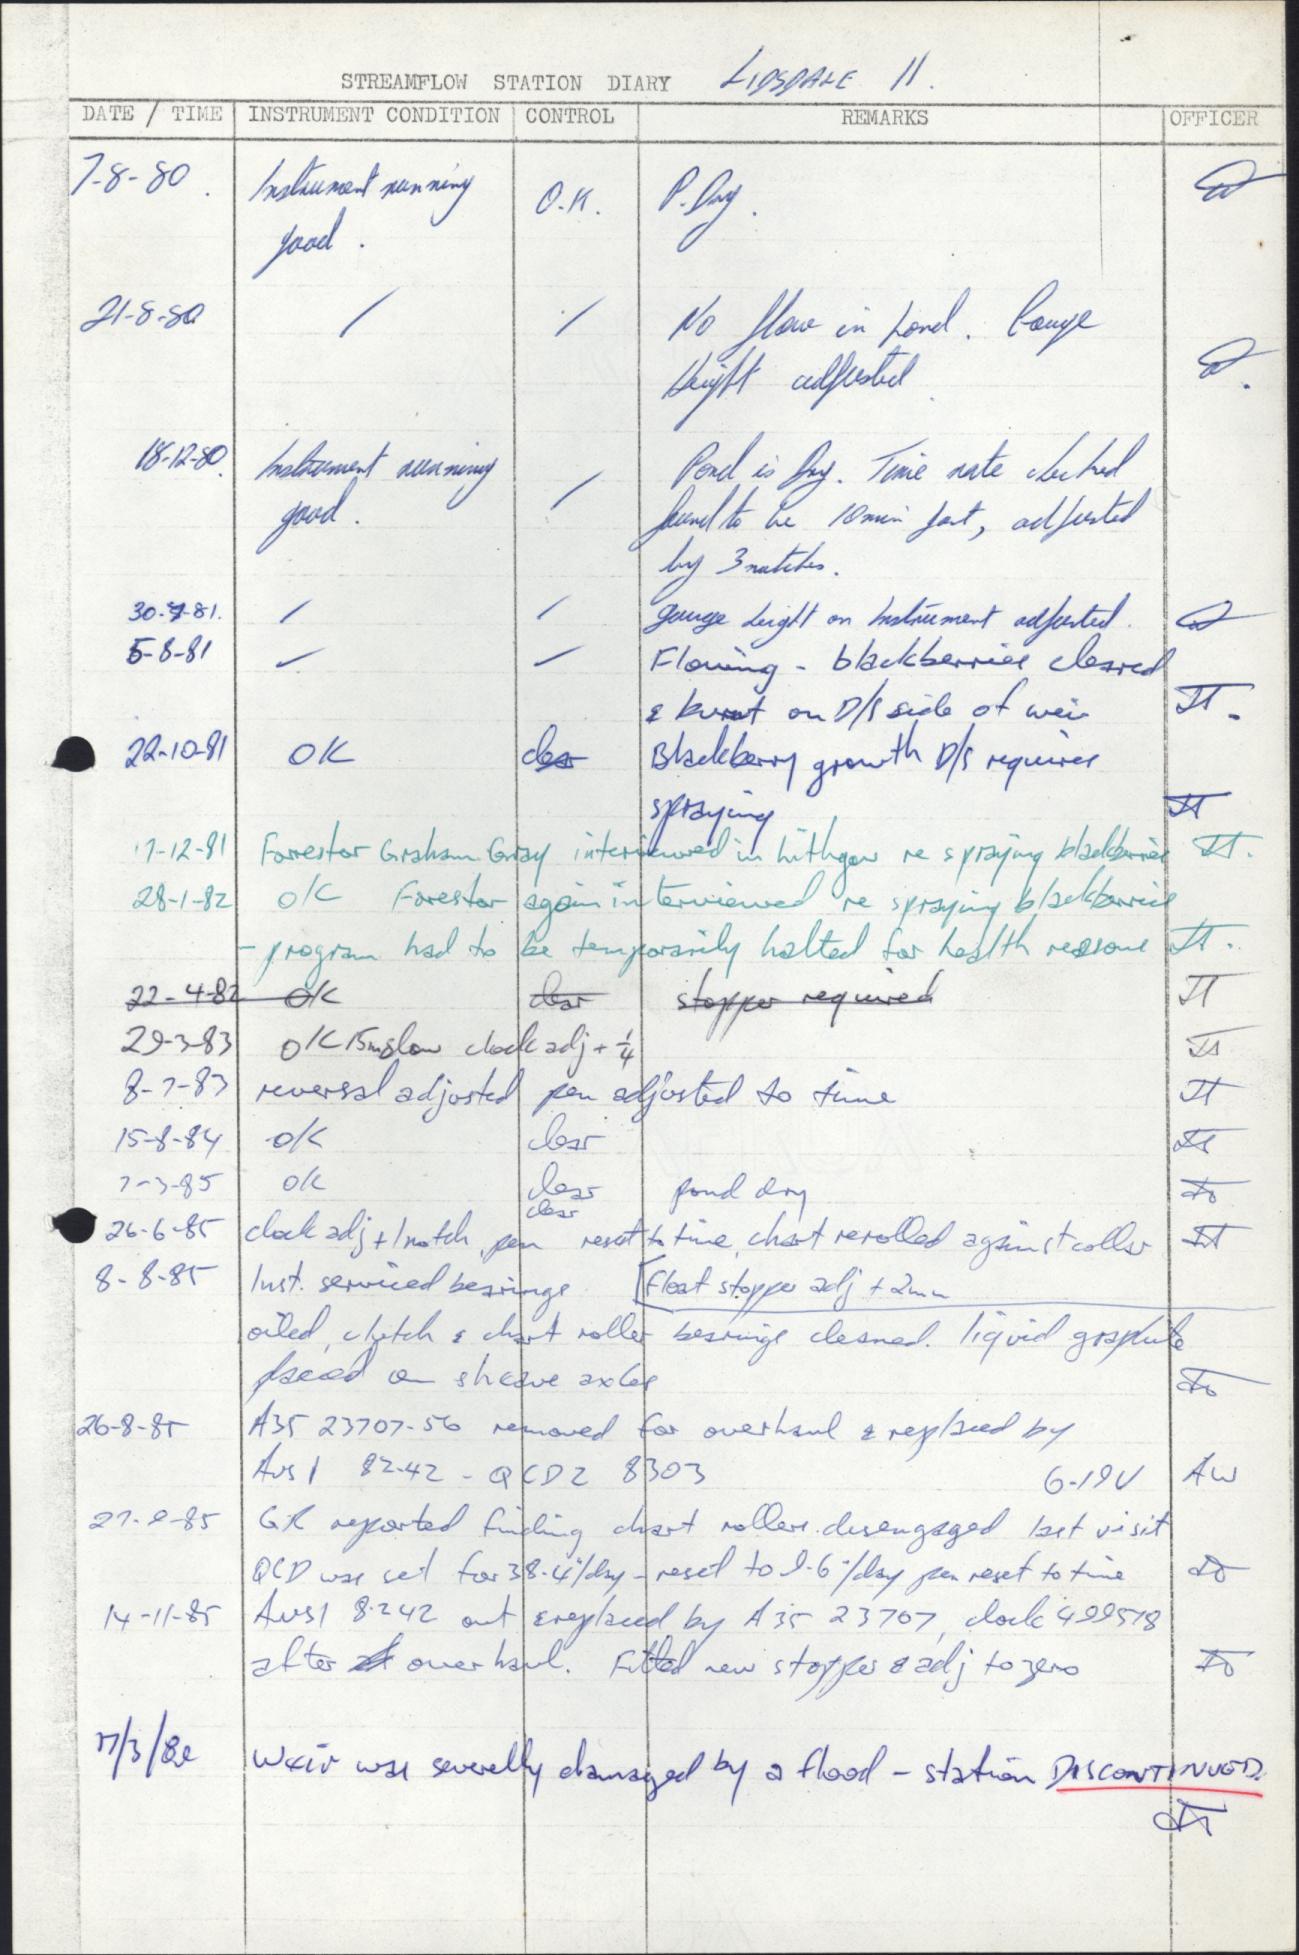 STREAMFLOW STATION DIARY LIDSDALE 11.
DATE / TIME INSTRUMENT CONDITION CONTROL REMARKS OFFICER
7-8-80. Instrument running O.K. P. Dry.
good.
21-8-80 / / No flow in pond. Gauge
height adjusted
18-12-80. Instrument running / Pond is Dry. Time rate checked
good. found to be 10min fast, adjusted
by 3 notches.
30-7-81. / / gauge height on Instrument adjusted.
5-8-81 ✓ ✓ Flowing - blackberries cleared
& burnt on D/S side of weir JT.
22-10-81 OK clear Blackberry growth D/S requires
spraying JT
17-12-81 Forrestor Graham Gray interviewed in Lithgow re spraying blackberries JT.
28-1-82 OK Forestor again interviewed re spraying blackberries
- program had to be temporarily halted for health reasons JT.
22-4-82 OK clear stopper required JT
29-3-83 OK 15m slow clock adj + 1/4 JT
8-7-83 reversal adjusted pen adjusted to time JT
15-8-84 OK clear JT
7-3-85 OK clear pond dry
clear
26-6-85 clock adj + 1 notch, pen reset to time, chart rerolled against collar JT
8-8-85 Inst. serviced bearings [Float stopper adj + 2mm
oiled, clutch & chart roller bearings cleaned. liquid graphite
placed on sheave axles
26-8-85 A35 23707-56 removed for overhaul & replaced by
Aus1 82-42 - QCD2 8303 6-19V AW
27-9-85 GR reported finding chart rollers disengaged last visit
QCD was set for 38.4"/day - reset to 9.6"/day pen reset to time
14-11-85 Aus1 8242 out & replaced by A35 23707, clock 499578
after overhaul. Fitted new stopper & adj to zero
Weir was severelly damaged by a flood - station DISCONTINUED.
JT